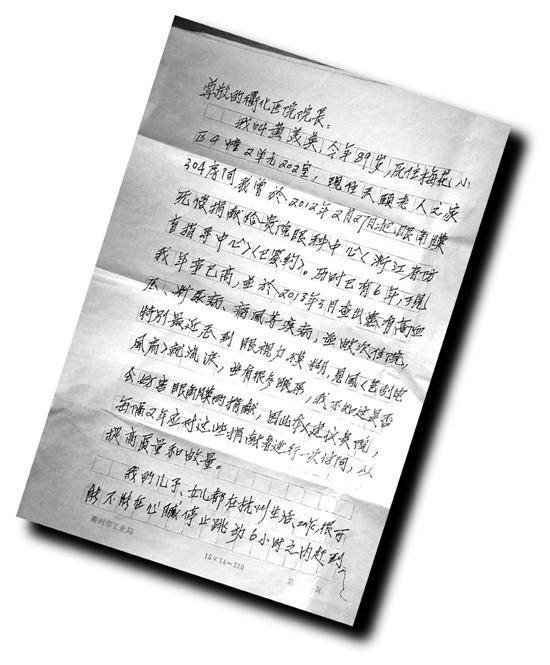 尊敬的衢化医院院长:
我叫黄美英,今年89岁,原住梅花小
区4幢2单元202室,现住天颐老人之家
304房间我曾於2012年2月27日把眼角膜
死后捐献给贵院眼科中心(浙江省防
盲指导中心)(已签约)。历时已有6年,现
我年事已高,並於2013年3月查出患有高血
压、糖尿病、痛风等疾病,並几次住院,
特别最近感到眼视力模糊,见风(包刮电
风扇)就流淚,並有很多眼屎,我不知这是否
会妨害眼角膜的捐献,因此我建议贵院,
每隔2年应对这些捐献者进行一次访问,以
提高质量和数量。
我的儿子、女儿都在杭州生活工作很可
能不能在心臟停止跳动6小时之内赶到
衢州市工业局
15×14=210
第 页